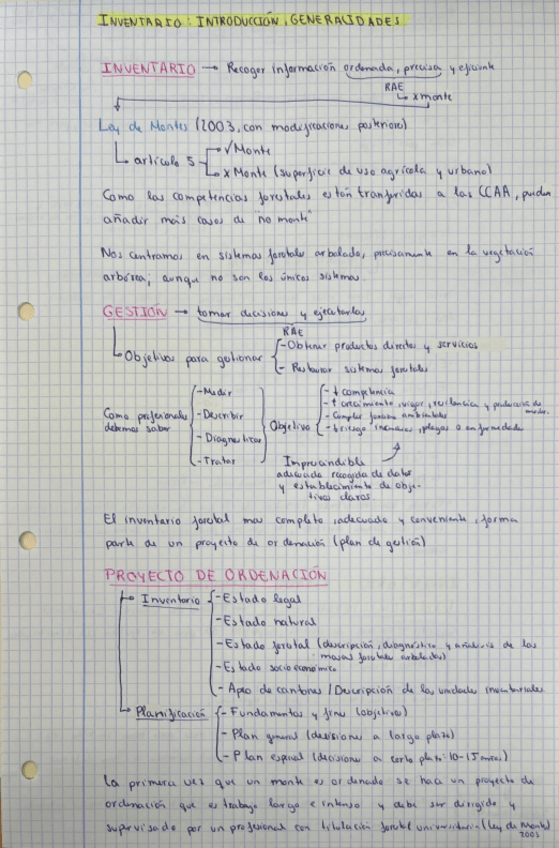 INVENTARIO: INTRODUCCIÓN, GENERALIDADES
INVENTARIO → Recoger información ordenada, precisa y eficiente
RAE
↳ x monte
Ley de Montes (2003, con modificaciones posteriores)
↳ artículo 5
√ Monte
x Monte (superficie de uso agrícola y urbano)
Como las competencias forestales están tranferidas a las CCAA, pueden
añadir más casos de "no monte"
Nos centramos en sistemas forestales arbolados, precisamente en la vegetación
arbórea; aunque no son los únicos sistemas.
GESTIÓN → tomar decisiones y ejecutarlas
RAE
↳ Objetivos para gestionar
- Obtener productos directos y servicios
- Restaurar sistemas forestales
Como profesionales
debemos saber
- Medir
- Describir
- Diagnosticar
- Tratar
Objetivo
- ↓ competencia
- ↑ crecimiento, vigor, resiliencia y producción de
madera
- Cumplir funciones ambientales
- ↓ riesgo incendios, plagas o enfermedades
Imprescindible
adecuada recogida de datos
y establecimiento de obje-
tivos claros
El inventario forestal mas completo, adecuado y conveniente, forma
parte de un proyecto de ordenación (plan de gestión)
PROYECTO DE ORDENACIÓN
Inventario
- Estado legal
- Estado natural
- Estado forestal (descripción, diagnóstico y análisis de las
masas forestales arboladas)
- Estado socioeconómico
- Apeo de cantones / Descripción de las unidades inventariales
Planificación
- Fundamentos y fines (objetivos)
- Plan general (decisiones a largo plazo)
- Plan especial (decisiones a corto plazo: 10-15 años)
La primera vez que un monte es ordenado se hace un proyecto de
ordenación que es trabajo largo e intenso y debe ser dirigido y
supervisado por un profesional con titulación forestal universitaria (Ley de Montes
2003